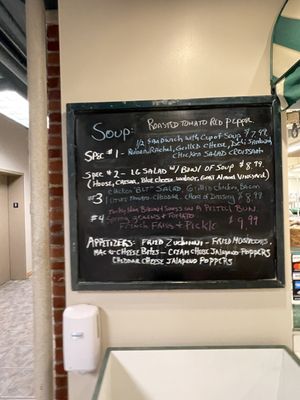 Soup: Roasted Tomato Red Pepper
1/2 Sandwich with Cup of Soup $7.99
Spec #1 - Ruben, Rachel, Grilled Cheese,
Chicken Salad Croissant
Spec #2 - LG Salad w/ Bowl of Soup $8.99
(House, Caesar, Blue cheese Walnut,
#3 Chicken "BLT" Salad, Grilled chicken, Bacon
Tomato Cheddar Choice of Dressing $8.99
#4 on a Pretzel Bun
& Tomato
French Fries & Pickle $9.99
Appetizers: Fried Zucchini - Fried Mushrooms
Mac & Cheese Bites - Cream Cheese Jalapeno Poppers
Cheddar Cheese Jalapeno Poppers